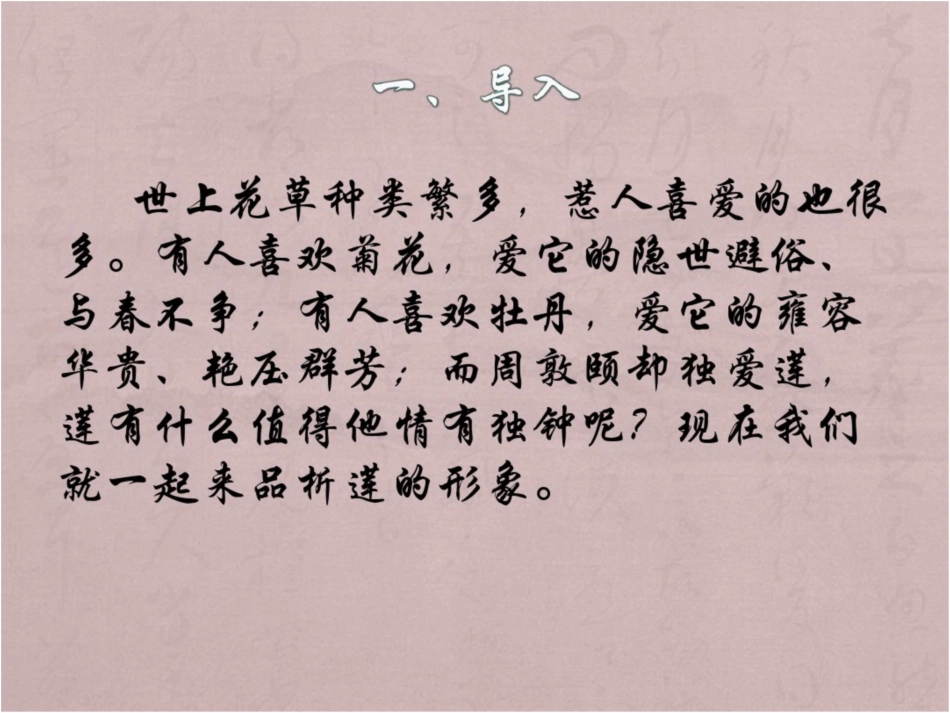 一、导入
世上花草种类繁多，惹人喜爱的也很
多。有人喜欢菊花，爱它的隐世避俗、
与春不争；有人喜欢牡丹，爱它的雍容
华贵、艳压群芳；而周敦颐却独爱莲，
莲有什么值得他情有独钟呢？现在我们
就一起来品析莲的形象。